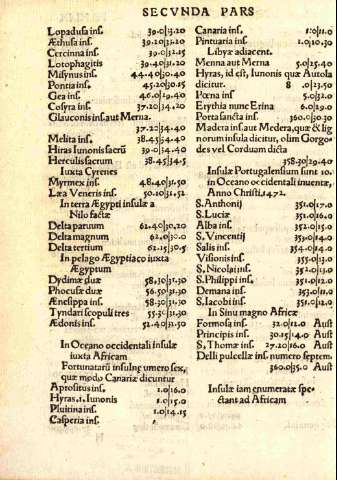 SECVNDA PARS
Lopadusa ins. 39.0|33.20
Æthusa ins. 39.20|33.20
Cercinna ins. 39.0|32.15
Lotophagitis 39.40|31.20
Misynus ins. 44.40|30.40
Pontia ins. 45.20|30.15
Gea ins. 46.0|29.40
Cosyra ins. 37.20|34.20
Glauconis ins. aut Merna.
37.20|34.40
Melita ins. 38.45|34.40
Hiras Iunonis sacrū 39.0|34.40
Herculis sacrum 38.45|34.5
Iuxta Cyrenes
Myrmex ins. 48.40|31.50
Læa Veneris ins. 50.10|31.52
In terra Ægypti insulæ a
Nilo factæ
Delta paruum 62.40|30.20
Delta magnum 62.0|30.0
Delta tertium 62.15|30.5
In pelago Ægyptiaco iuxta
Ægyptum
Dydimæ duæ 58.30|31.30
Phocusæ duæ 56.50|31.30
Ænesippa ins. 58.30|31.30
Tyndari scopuli tres 55.30|31.30
Ædonis ins. 52.40|31.50
In Oceano occidentali insulæ
iuxta Africam
Fortunatarū insulæ numero sex,
quæ modo Canariæ dicuntur
Aprositus ins. 1.0|16.0
Hyras, i. Iunonis 1.0|15.0
Pluitina ins. 1.0|14.15
Casperia ins.
Canaria ins. 1.0|11.0
Pintuaria ins. 1.0|10.30
Libyæ adiacent.
Menna aut Merna 5.0|25.40
Hyras, id est, Iunonis quæ Autola
dicitur. 8 .0|23.50
Pœna ins. 5.0|32.0
Erythia nunc Erina 6.0|29.0
Porta sancta ins. 360.0|30.30
Madera ins aut Medera, quæ & lig
norum insula dicitur, olim Gorgo
des vel Corduam dicta
358.30|29.40
Insulæ Portugalensium sunt 10.
in Oceano occidentali inuentæ,
Anno Christi, 1472.
S. Anthonij 351.0|17.0
S. Luciæ 351.0|16.0
Alba ins. 352.0|15.0
S. Vincentij 353.0|14.0
Salis ins. 354.0|14.0
Visionis ins. 355.0|13.0
S. Nicolai ins. 352.0|13.0
S. Philippi ins. 351.0|12.0
Demana ins. 353.0|11.0
S. Iacobi ins. 351.0|12.0
In Sinu magno Africæ
Formosa ins. 32.0|12.0 Aust
Principis ins. 30.15|14.0 Aust
S, Thomæ ins. 27.20|16.0 Aust
Delli pulcellæ ins. numero septem.
360.0|35.0 Aust
Insulæ iam enumeratæ spe-
ctant ad Africam